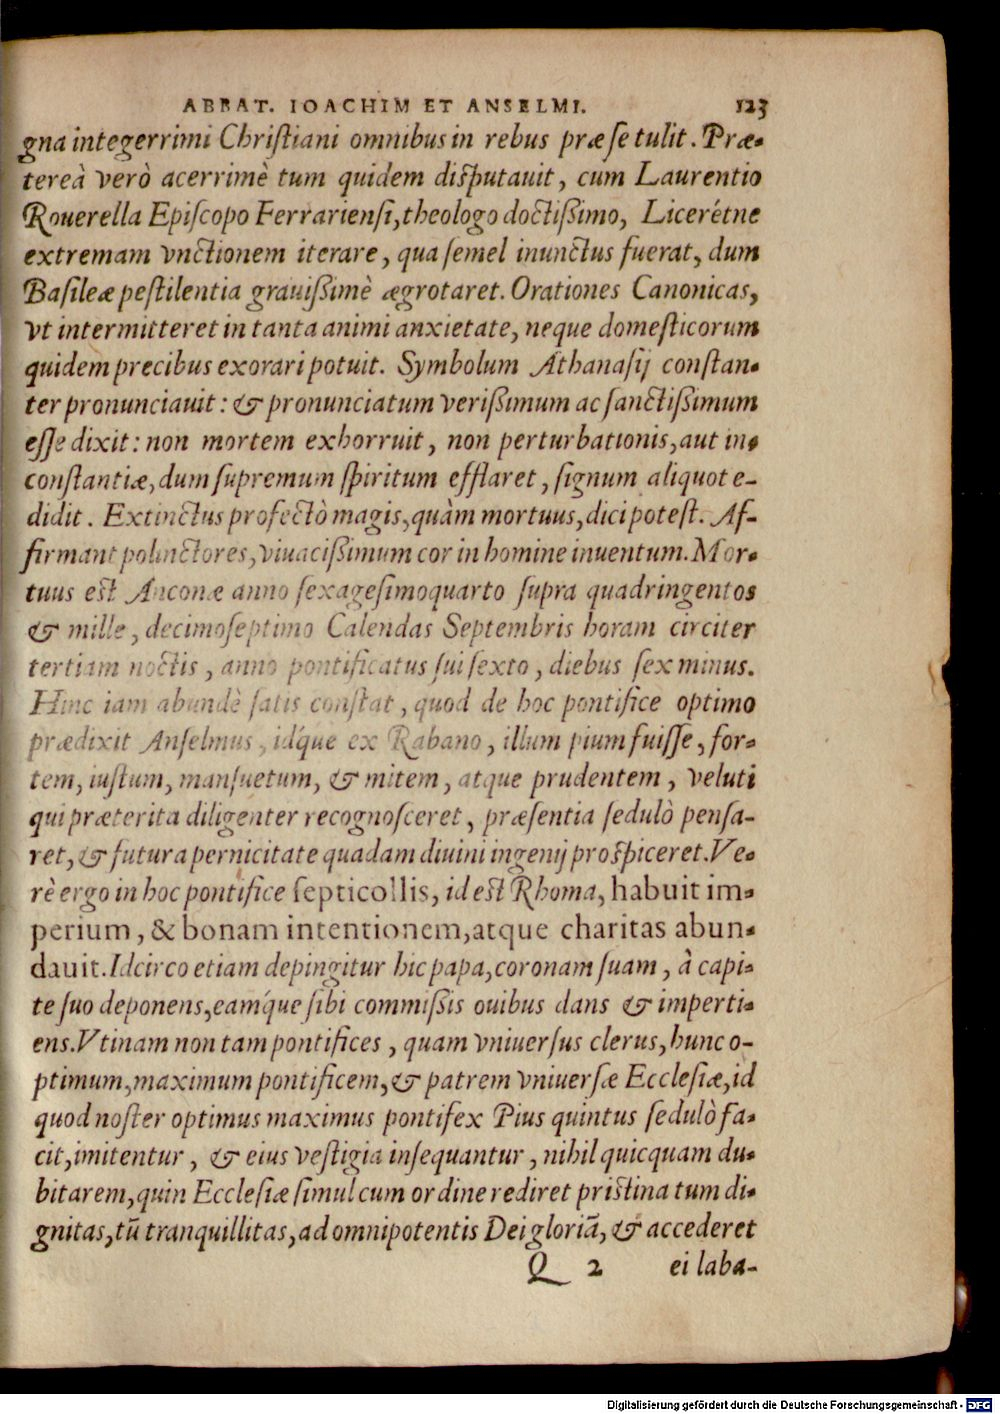 ABBAT. IOACHIM ET ANSELMI. 123
gna integerrimi Chriſtiani omnibus in rebus præ ſe tulit. Præ-
tereà verò acerrimè tum quidem diſputauit, cum Laurentio
Rouerella Epiſcopo Ferrarienſi, theologo doctißimo, Licerétne
extremam vnctionem iterare, qua ſemel inunctus fuerat, dum
Baſileæ peſtilentia grauißimè ægrotaret. Orationes Canonicas,
vt intermitteret in tanta animi anxietate, neque domeſticorum
quidem precibus exorari potuit. Symbolum Athanaſij conſtan-
ter pronunciauit: & pronunciatum verißimum ac ſanctißimum
eſſe dixit: non mortem exhorruit, non perturbationis, aut in-
conſtantiæ, dum ſupremum ſpiritum efflaret, ſignum aliquot e-
didit. Extinctus profectò magis, quàm mortuus, dici poteſt. Af-
firmant polinctores, viuacißimum cor in homine inuentum. Mor-
tuus eſt Anconæ anno ſexageſimoquarto ſupra quadringentos
& mille, decimoſeptimo Calendas Septembris horam circiter
tertiam noctis, anno pontificatus ſui ſexto, diebus ſex minus.
Hinc iam abundè ſatis conſtat, quod de hoc pontifice optimo
prædixit Anſelmus, id'que ex Rabano, illum pium fuiſſe, for-
tem, iuſtum, manſuetum, & mitem, atque prudentem, veluti
qui præterita diligenter recognoſceret, præſentia ſedulò penſa-
ret, & futura pernicitate quadam diuini ingenij proſpiceret. Ve-
rè ergo in hoc pontifice ſepticollis, id eſt Rhoma, habuit im-
perium, & bonam intentionem, atque charitas abun-
dauit. Idcirco etiam depingitur hic papa, coronam ſuam, à capi-
te ſuo deponens, eam'que ſibi commißis ouibus dans & imperti-
ens. Vtinam non tam pontifices, quam vniuerſus clerus, hunc o-
ptimum, maximum pontificem, & patrem vniuerſæ Eccleſiæ, id
quod noſter optimus maximus pontifex Pius quintus ſedulò fa-
cit, imitentur, & eius veſtigia inſequantur, nihil quicquam du-
bitarem, quin Eccleſiæ ſimul cum ordine rediret priſtina tum di-
gnitas, tū tranquillitas, ad omnipotentis Dei gloriā, & accederet
Q 2 ei laba-
Digitalisierung gefördert durch die Deutsche Forschungsgemeinschaft - DFG